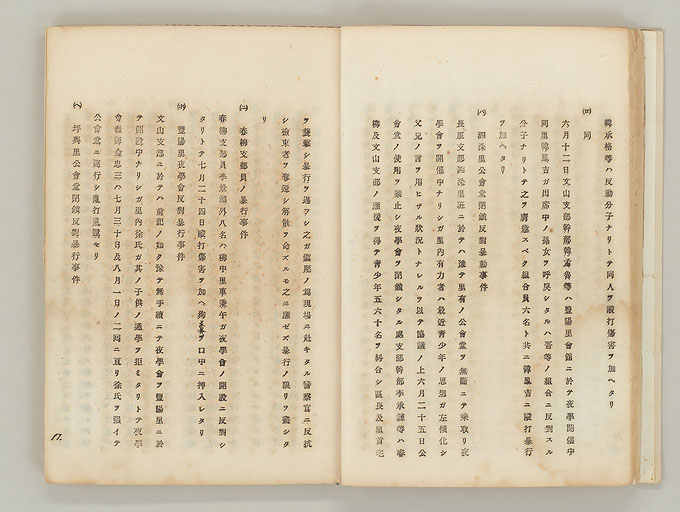 韓承格等ハ反動分子ナリトテ同人ヲ毆打傷害ヲ加ヘタリ
(ロ) 同
六月十二日文山支部幹部韓孟善等ハ豐陽里會館ニ於テ夜學開催中
同里韓鳳吉ガ出席中ノ孫女ヲ呼戾シタルハ吾等ノ組合ニ反對スル
分子ナリトテ之ヲ膺懲スベク組合員六名ト共ニ韓鳳吉ニ毆打暴行
ヲ加ヘタリ
(ハ) 泗洙里公會堂閉鎖反對暴動事件
長原支部泗洙里班ニ於テハ豫テ里有ノ公會堂ヲ無斷ニテ乘取リ夜
學會ヲ開催中ナリシガ里內有力者ハ最近靑少年ノ思想ガ左傾化シ
父兄ノ言ヲ用ヒザル狀況トナレルヲ以テ協議ノ上六月二十五日公
會堂ノ使用ヲ禁止シ夜學會ヲ閉鎖シタル處支部幹部李承諫等ハ春
柳及文山支部ノ應援ヲ得テ靑少年五六十名ヲ糾合シ區長及里首宅
ヲ襲擊シ暴行ヲ逞フシ之ガ鎭壓ノ爲現場ニ赴キタル警察官ニ反抗
シ檢束者ヲ奪還シ解散ヲ命ズルモ之ニ應ゼズ暴行ノ限リヲ盡シタ
リ
(ニ) 春柳支部員ノ暴行事件
春柳支部員李景鎬外八名ハ柳中里車秉午ガ夜學會ノ開設ニ反對シ
タリトテ七月二十四日毆打傷害ヲ加ヘ狗糞ヲ口中ニ押入レタリ
(ホ) 豐陽里夜學會反對暴行事件
文山支部ニ於テハ前記ノ如ク豫テ無手續ニテ夜學會ヲ豐陽里ニ於
テ開設中ナリシガ里內徐氏ガ其ノ子供ノ通學ヲ拒ミタリトテ夜學
會敎師金忠三ハ七月三十日及八月一日ノ二回ニ亘リ徐氏ヲ强イテ
公會堂ニ連行シ亂打嘲駡セリ
(ヘ) 坪興里公會堂閉鎖反對暴行事件
17.